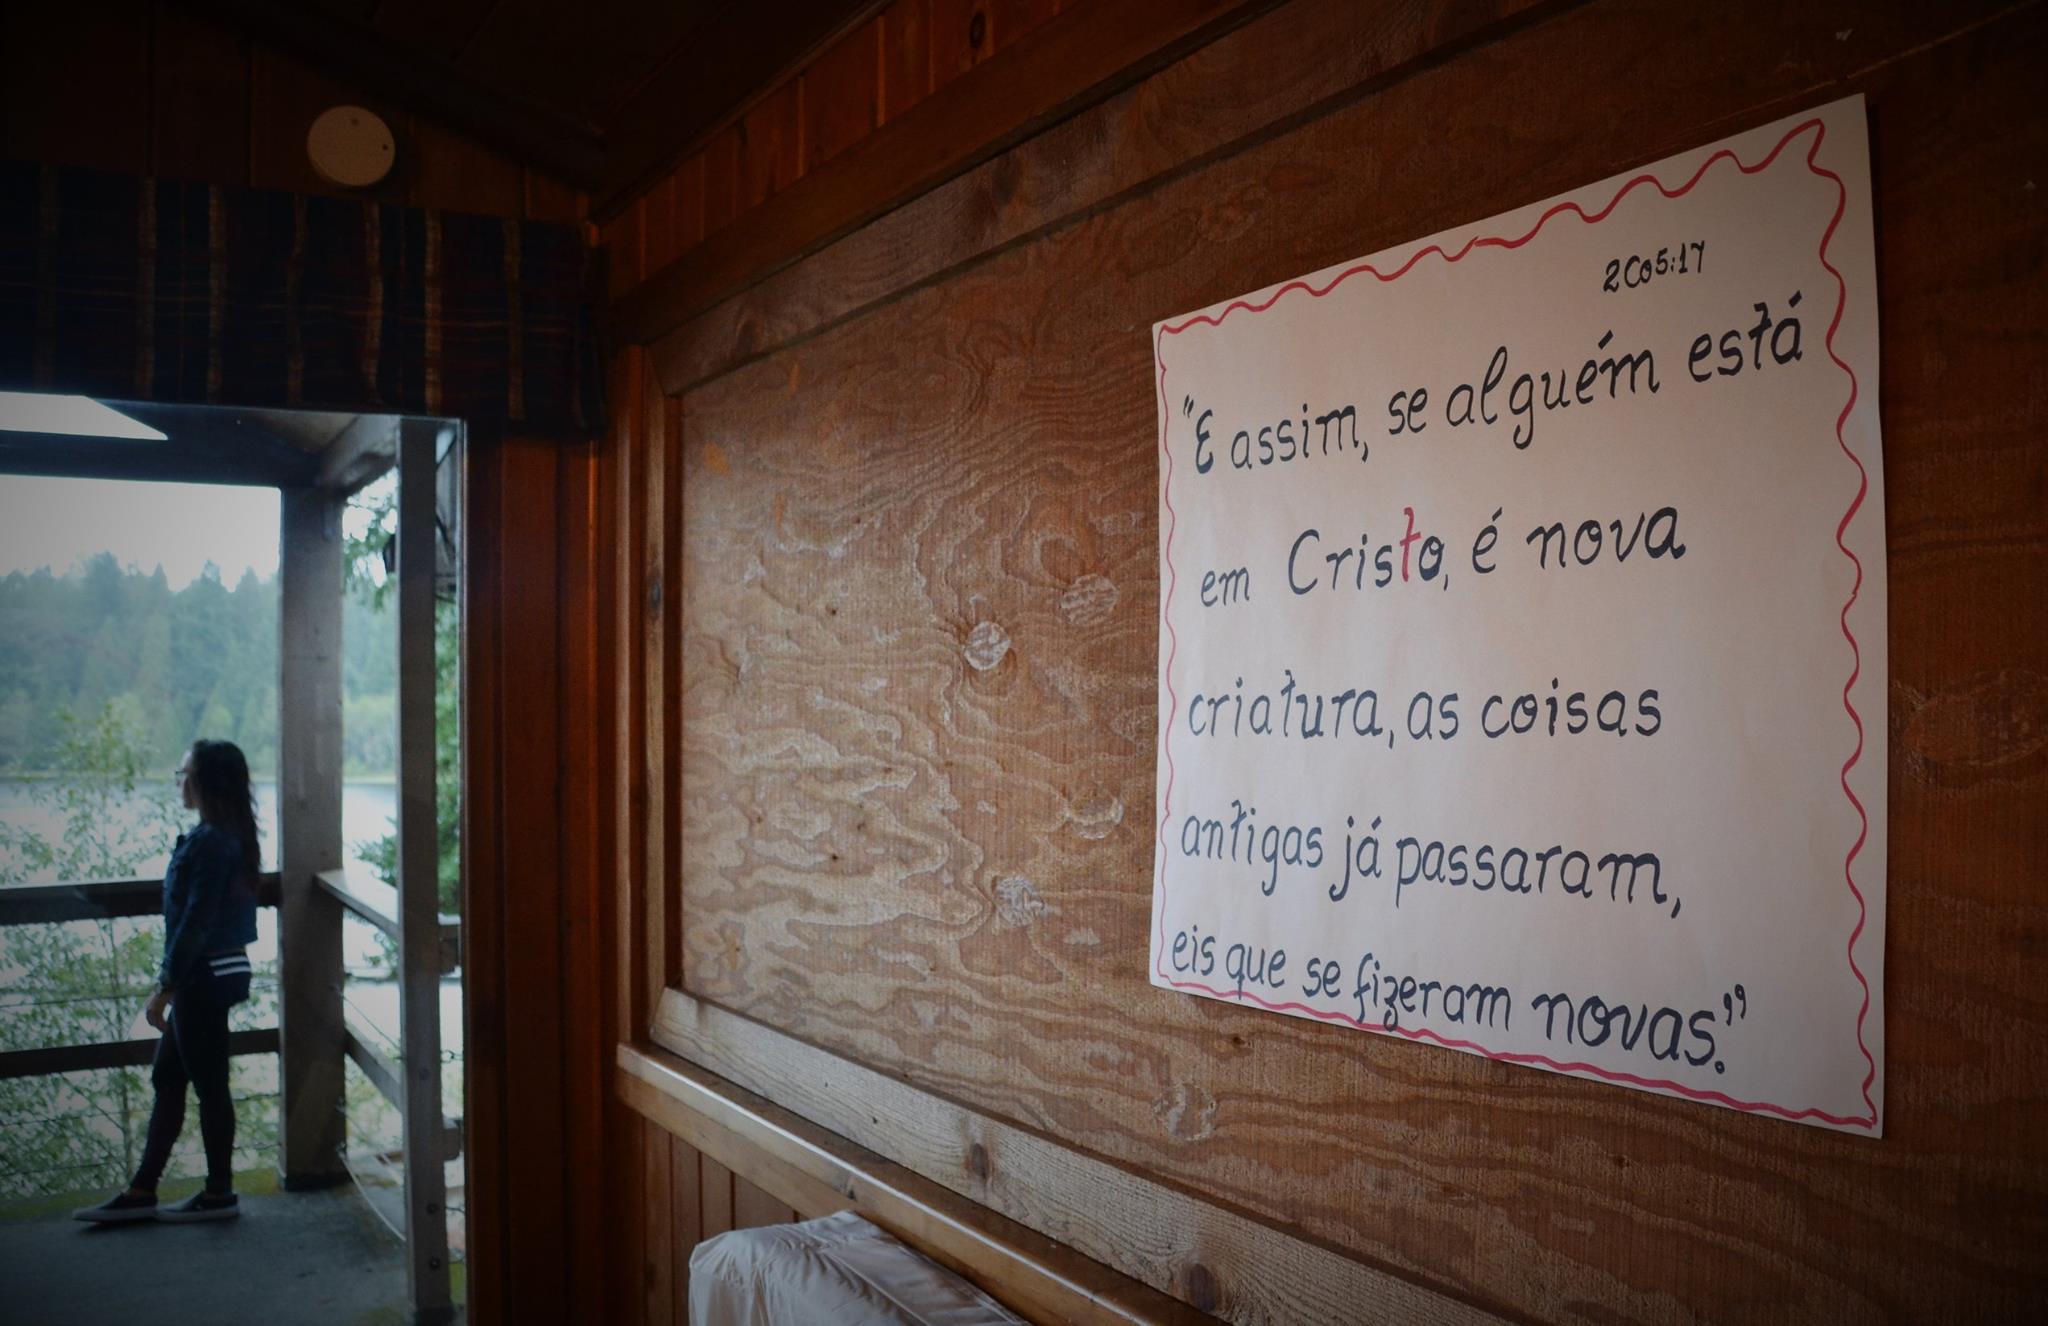 2Co5:17
"E assim, se alguém está
em Cristo, é nova
criatura, as coisas
antigas já passaram,
eis que se fizeram novas."